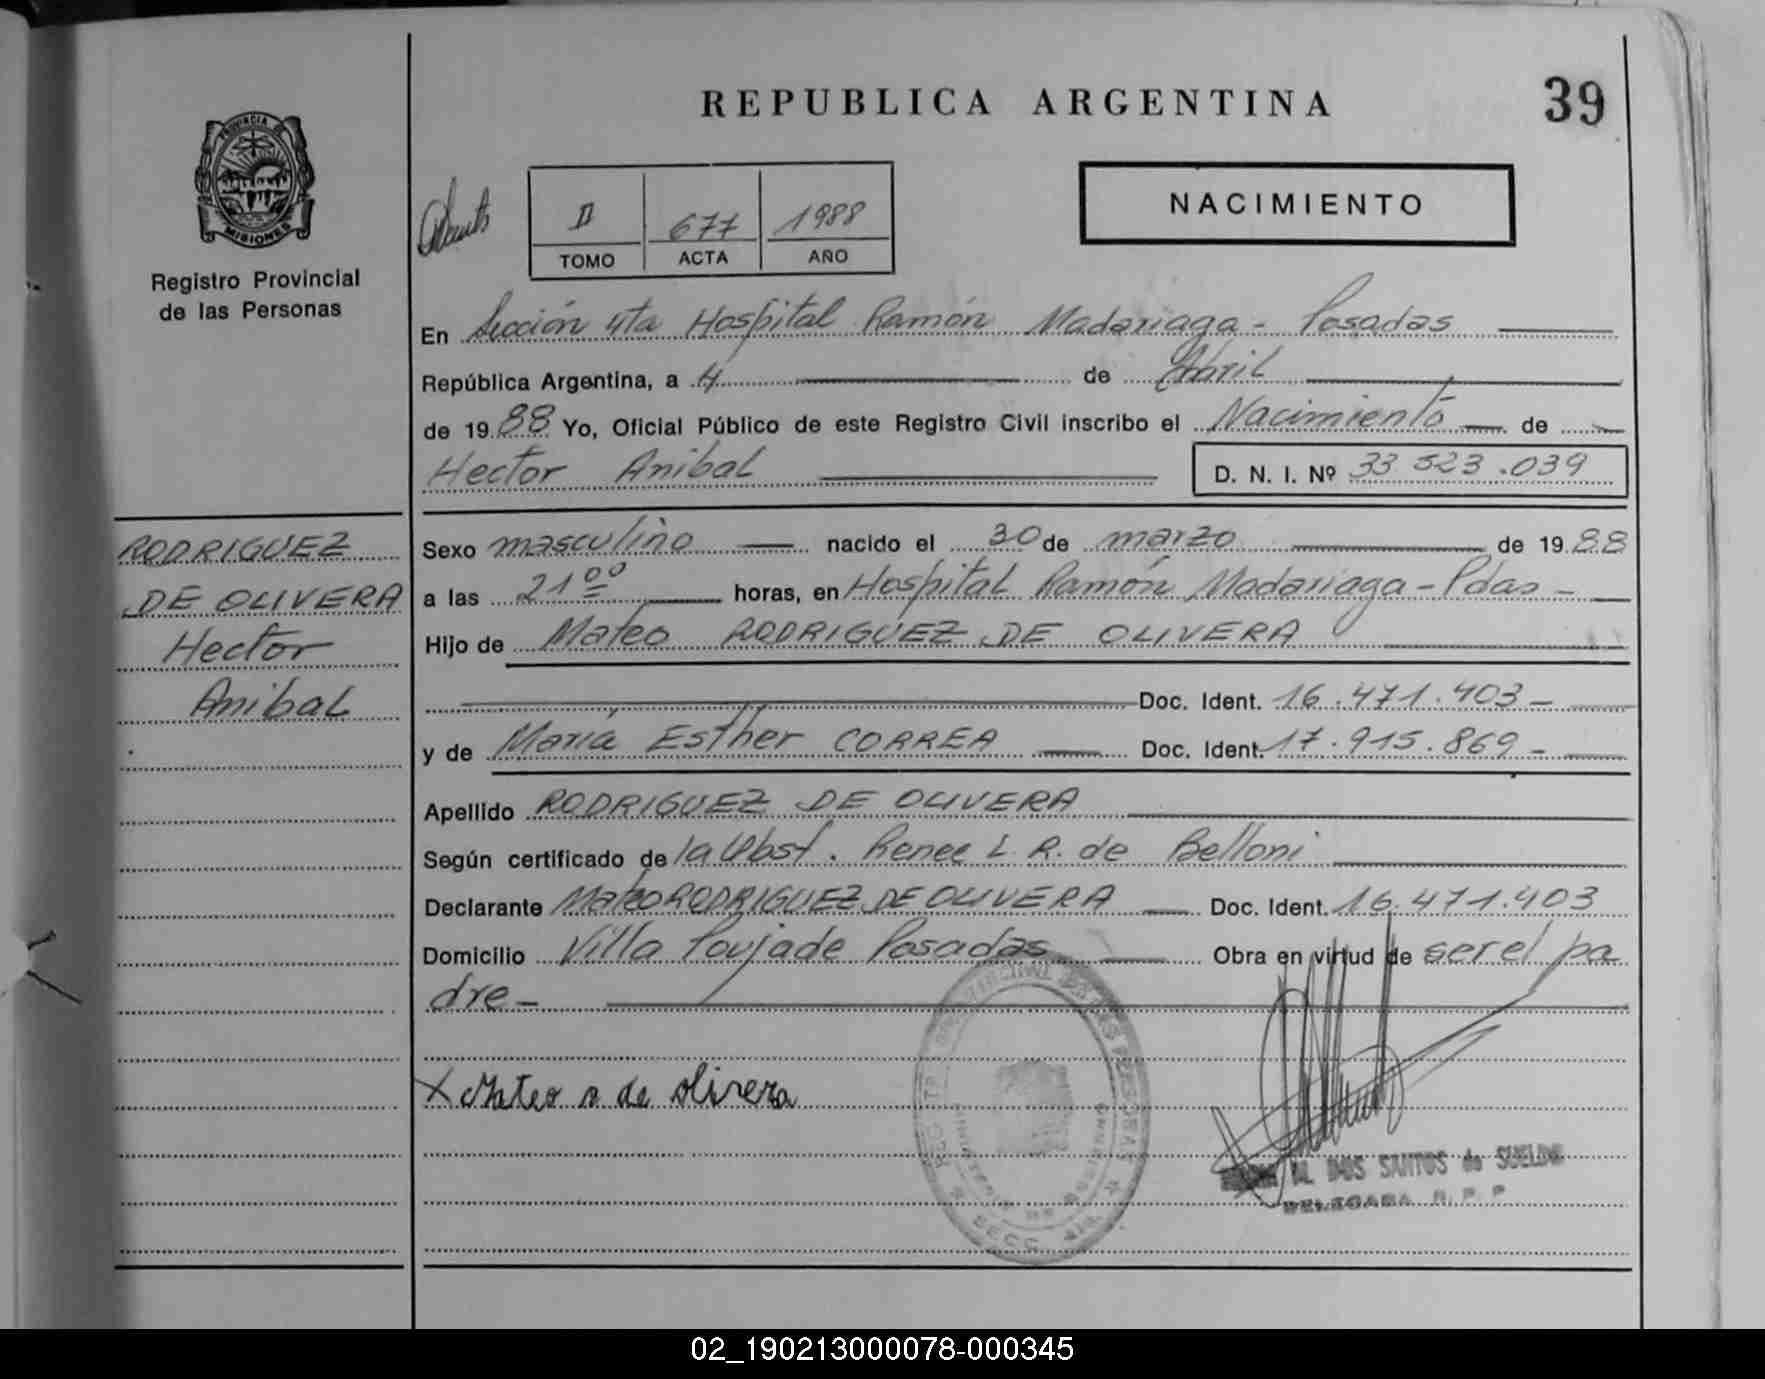 REPUBLICA ARGENTINA
39
PROVINCIA DE
MISIONES
Registro Provincial
de las Personas
II 677 1988
TOMO ACTA AÑO
NACIMIENTO
En Sección 4ta Hospital Ramón Madariaga - Posadas
República Argentina, a 4 de Abril
de 1988 Yo, Oficial Público de este Registro Civil inscribo el Nacimiento de
Hector Anibal D. N. I. Nº 33 523.039
RODRIGUEZ
DE OLIVERA
Hector
Anibal
Sexo masculino nacido el 30 de marzo de 1988
a las 21 00 horas, en Hospital Ramón Madariaga - Pdas -
Hijo de Mateo RODRIGUEZ DE OLIVERA
Doc. Ident. 16.471.403 -
y de María Esther CORREA Doc. Ident. 17.915.869 -
Apellido RODRIGUEZ DE OLIVERA
Según certificado de la Obst. Renee L. R. de Belloni
Declarante Mateo RODRIGUEZ DE OLIVERA Doc. Ident. 16.471.403
Domicilio Villa Poujade Posadas Obra en virtud de ser el pa
dre -
X Mateo r de olivera
DOS SANTOS de SUELDO
DELEGADA R. P. P.
02_190213000078-000345